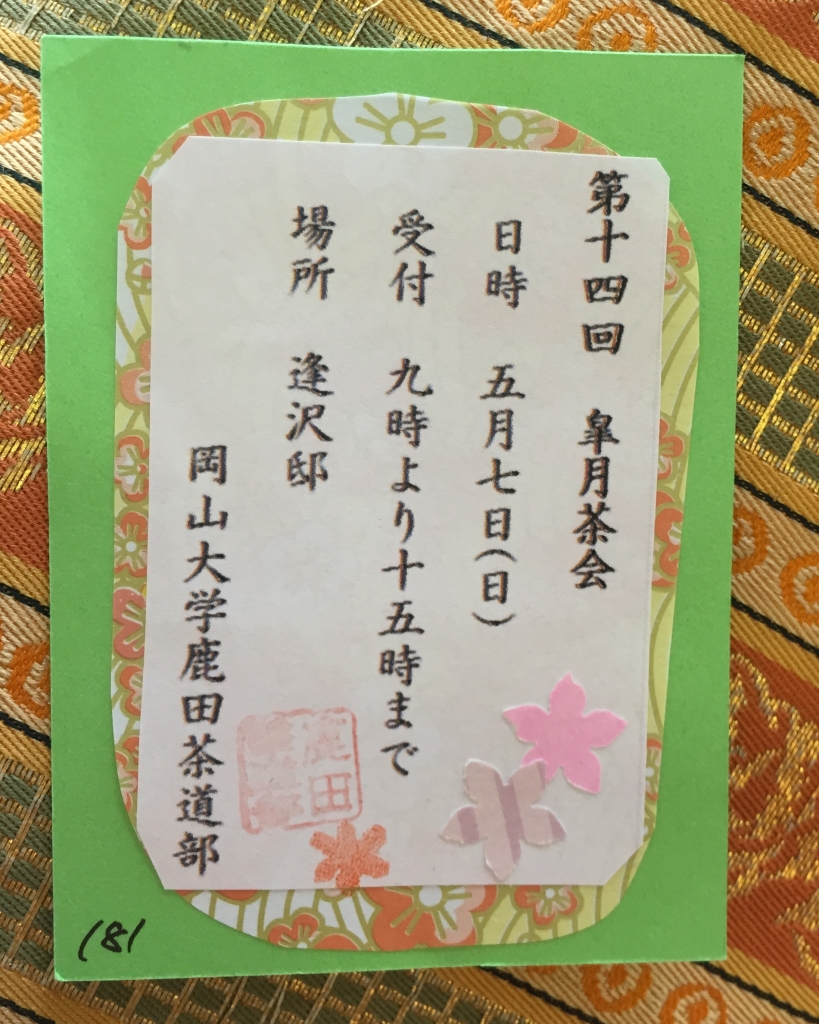 第十四回 皐月茶会
日時 五月七日(日)
受付 九時より十五時まで
場所 逢沢邸
岡山大学鹿田茶道部
鹿田
181